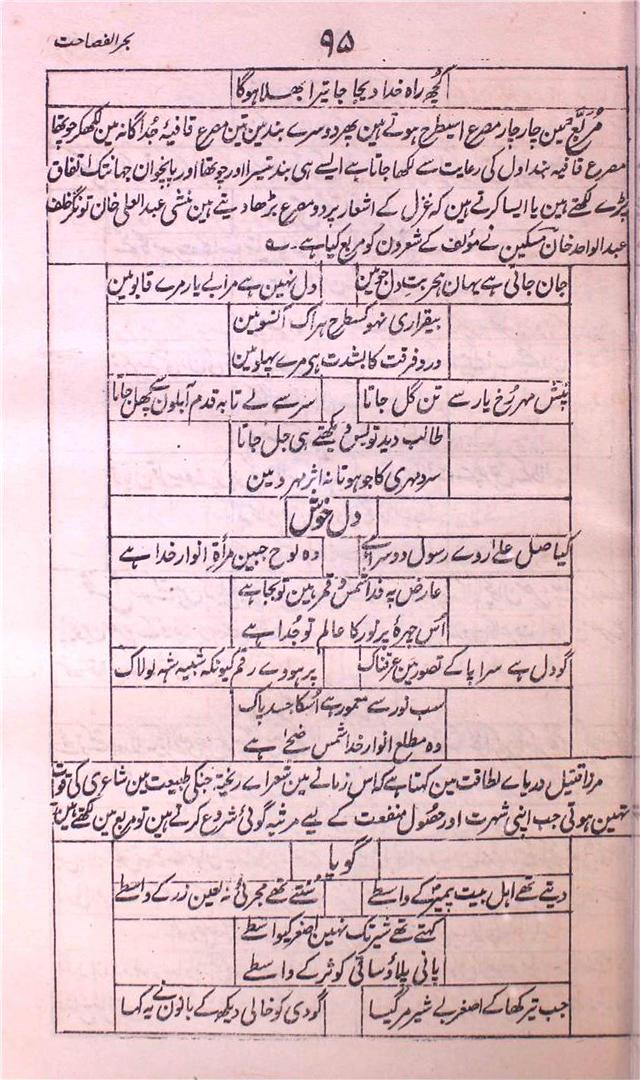 بحر الفصاحت
۹۵
کچھ راہ خدا دیجا جا تیرا بھلا ہوگا
مربع جسمین چار چار مصرع اسیطرح ہوتے ہین پھر دوسرے بند مین تین مصرع قافیۂ جداگانہ مین لکھکر چوتھا
مصرع قافیہ بند اول کی رعایت سے لکھا جاتا ہے ایسے ہی بند تیسرا اور چوتھا اور پانچوان جہانتک اتفاق
پڑے لکھتے ہین یا ایسا کرتے ہین کہ غزل کے اشعار پر دو مصرع بڑھا دیتے ہین منشی عبد العلی خان تونگر خلف
عبد الواحد خان مسکین نے مؤلف کے شعرون کو مربع کیا ہے۔
جان جاتی ہے یہان ہجر بت دلجو مین
دل نہین ہے مرا بے یار مرے قابو مین
بیقراری نہو کسطرح ہر اک آنسو مین
درد فرقت کا بشدت ہی مرے پہلو مین
تپش مہر رخ یار سے تن گل جاتا
سر سے لے تا بہ قدم آبلون سے پھل جاتا
طالب دید تو بس دیکھتے ہی جل جاتا
سرد مہری کا جو ہوتا نہ اثر مہر و مین
دل خوش
کیا صل علےٰ روے رسول دوسرا ہے
وہ لوح جبین مرأۃ انوار خدا ہے
عارض پہ فدا شمس و قمر ہین تو بجا ہے
اس چہرۂ پر نور کا عالم تو جدا ہے
گو دل ہے سراپا کے تصور مین عرفناک
پر ہووے رقم کیونکہ شبیہ شہ لولاک
سب نور سے معمور ہے اسکا جسد پاک
وہ مطلع انوار خدا شمس ضحےٰ ہے
مرزا قتیل دریاے لطافت مین کہتا ہے کہ اس زمانے مین شعراے ریختہ جنکی طبیعت مین شاعری کی قوت
نہین ہوتی جب اپنی شہرت اور حصول منفعت کے لیے مرثیہ گوئی شروع کرتے ہین تو مربع مین لکھتے ہین
گویا
دیتے تھے اہل بیت پیمبر کے واسطے
سنتے تھے مجرئی نہ لعین زر کے واسطے
کہتے تھے شیر تک نہین اصغر کیواسطے
پانی پلاؤ ساقی کوثر کے واسطے
جب تیر کھا کے اصغر بے شیر مر گیا
گودی کو خالی دیکھ کے بانو نے یہ کہا